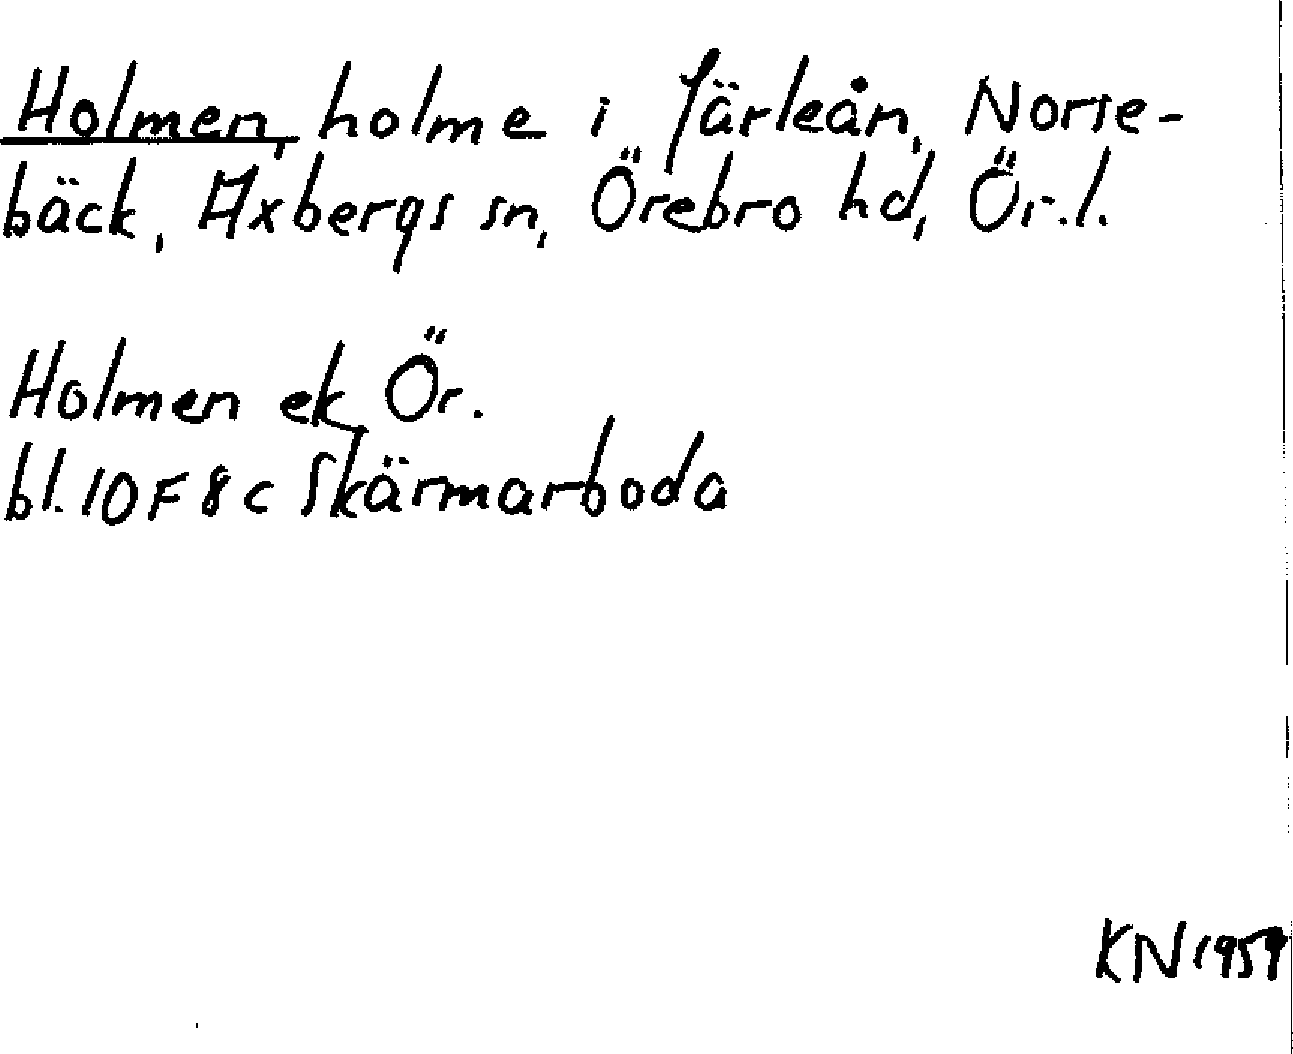 Holmen, holme i Järleån, Norse-
bäck, Axbergs sn, Örebro hd, Ör.l.
Holmen ek Ör.
bl. 10F 8c Skärmarboda
KN 1959